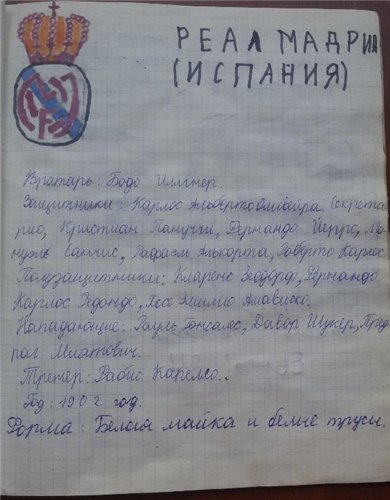 РЕАЛ МАДРИД
(ИСПАНИЯ)
Вратарь: Бодо Иллгнер.
Защитники: Карлос Альберто Оливейра Секрета
рио, Кристиан Пануччи, Фернандо Йерро, Ма-
нуэль Санчис, Рафаэль Алькорта, Роберто Карлос.
Полузащитники: Кларенс Зеодорф, Фернандо
Карлос Редондо, Хосе Эмилио Амависка.
Нападающие: Рауль Гонсалес, Давор Шукер, Пред
раг Миятович.
Тренер: Фабио Капелло.
Год: 1902 год.
Форма: Белая майка и белые трусы.